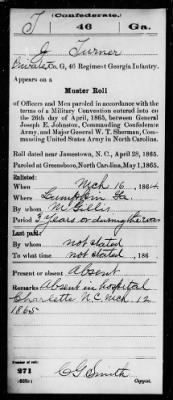 (Confederate.)
T 46 Ga.
J. Turner
Private, Co. G, 46 Regiment Georgia Infantry.
Appears on a
Muster Roll
of Officers and Men paroled in accordance with the
terms of a Military Convention entered into on
the 26th day of April, 1865, between General
Joseph E. Johnston, Commanding Confederate
Army, and Major General W. T. Sherman, Com-
manding United States Army in North Carolina.
Roll dated near Jamestown, N. C., April 28, 1865.
Paroled at Greensboro, North Carolina, May 1, 1865.
Enlisted:
When Mch 16, 1864
Where Lumpkin Ga.
By whom McGillis
Period 3 years or during the war
Last paid:
By whom not stated
To what time not stated, 186
Present or absent Absent
Remarks Absent in hospital
Charlotte N.C. Mch. 12
1865
Number of roll:
271
C G Smith
Copyist.